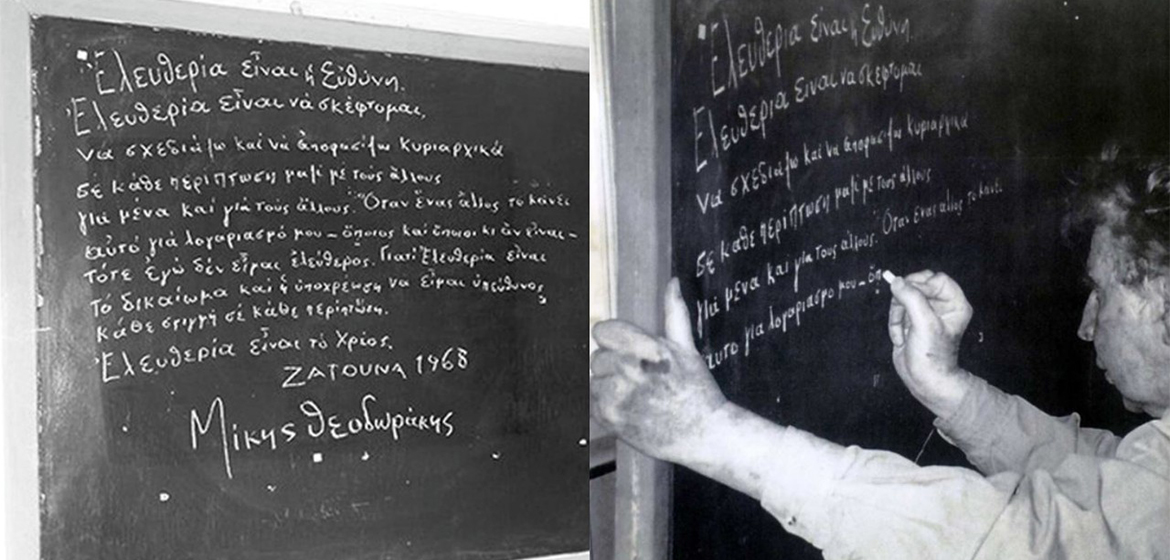 Ἐλευθερία εἶναι ἡ Εὐθύνη.
Ἐλευθερία εἶναι νὰ σκέφτομαι,
νὰ σχεδιάζω καὶ νὰ ἀποφασίζω κυριαρχικά
σὲ κάθε περίπτωση μαζὶ μὲ τοὺς ἄλλους
γιὰ μένα καὶ γιὰ τοὺς ἄλλους. Ὅταν ἕνας ἄλλος τὸ κάνει
αὐτό γιὰ λογαριασμό μου – ὅποιος καὶ ὅποιοι κι ἂν εἶναι –
τότε ἐγὼ δὲν εἶμαι ἐλεύθερος. Γιατί Ἐλευθερία εἶναι
τὸ δικαίωμα καὶ ἡ ὑποχρέωση νὰ εἶμαι ὑπεύθυνος
κάθε στιγμή σὲ κάθε περίπτωση.
Ἐλευθερία εἶναι τὸ Χρέος.
ΖΑΤΟΥΝΑ 1968
Μίκης Θεοδωράκης
Ἐλευθερία εἶναι ἡ Εὐθύνη.
Ἐλευθερία εἶναι νὰ σκέφτομαι
νὰ σχεδιάζω καὶ νὰ ἀποφασίζω κυριαρχικά
σὲ κάθε περίπτωση μαζὶ μὲ τοὺς ἄλλους
γιὰ μένα καὶ γιὰ τοὺς ἄλλους. Ὅταν ἕνας ἄλλος τὸ κάνει
αὐτό γιὰ λογαριασμό μου – ὅπ